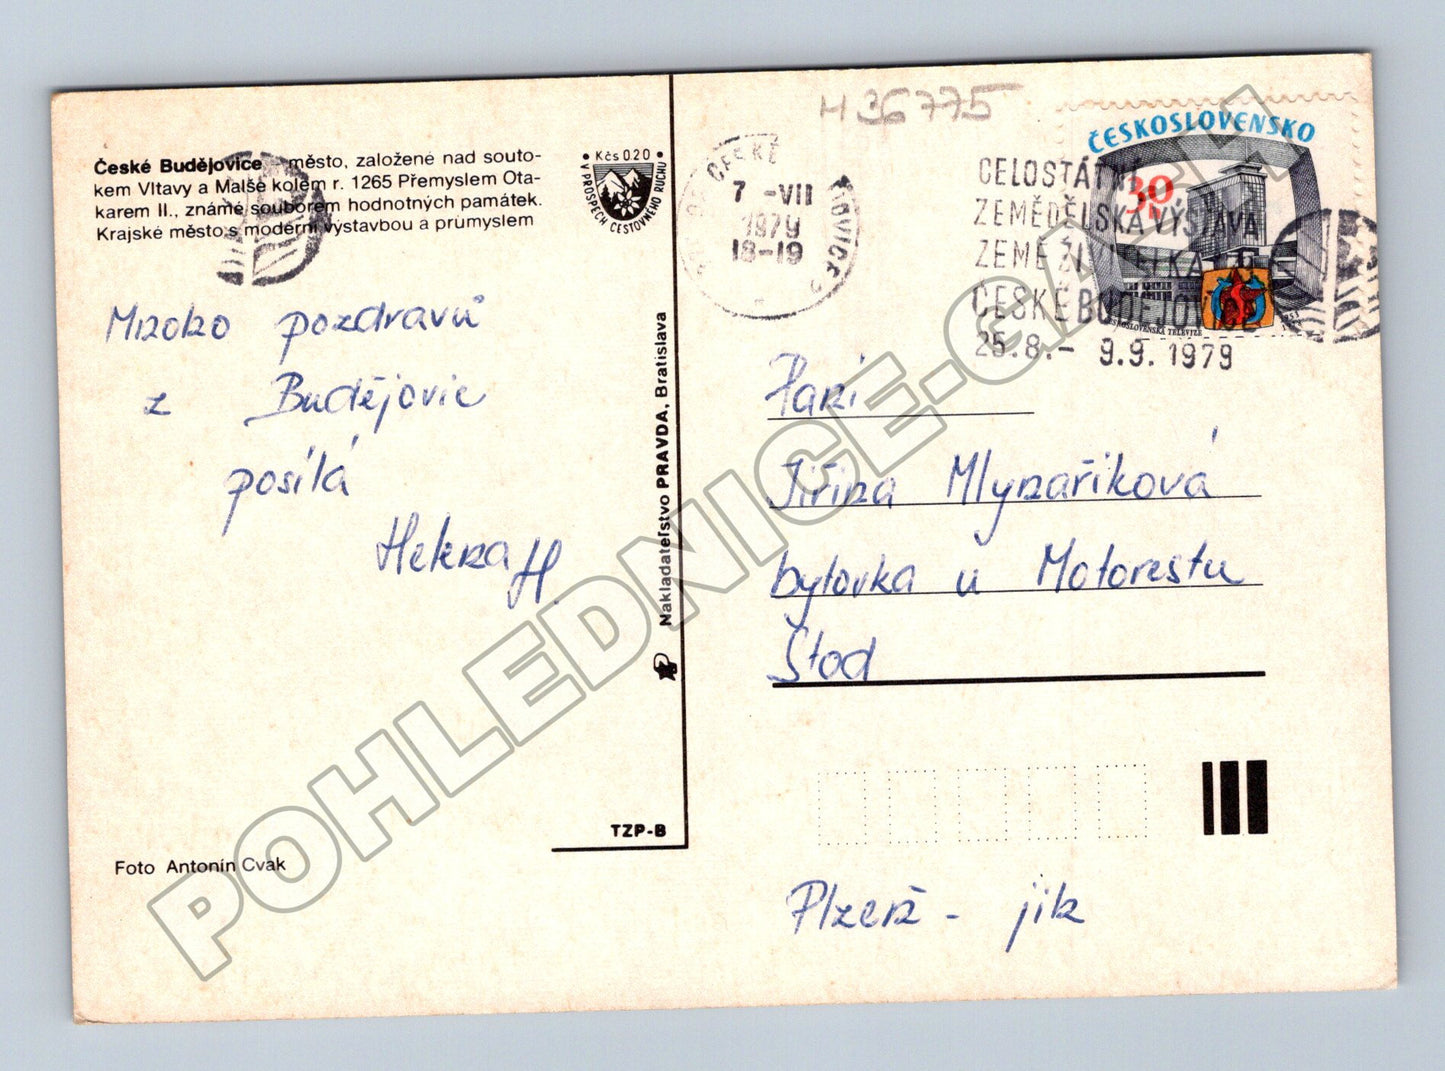 H 36775
České Budějovice – město, založené nad souto-
kem Vltavy a Malše kolem r. 1265 Přemyslem Ota-
karem II., známé souborem hodnotných památek.
Krajské město s moderní výstavbou a průmyslem
• Kčs 0.20 •
V PROSPĚCH CESTOVNÉHO RUCHU
Mnoho pozdravů
z Budějovic
posílá
Helena H.
Foto Antonín Cvak
Nakladateľstvo PRAVDA, Bratislava
TZP-B
ČESKÉ
7 -VII
1979
18-19
CELOSTÁTNÍ
ZEMĚDĚLSKÁ VÝSTAVA
ZEMĚ ŽIVITELKA
ČESKÉ BUDĚJOVICE
25.8.- 9.9.1979
ČESKOSLOVENSKO
30
h
ČESKOSLOVENSKÁ TELEVIZE
Paní
Jiřina Mlynaříková
bytovka u Motorestu
Stod
Plzeň - jih
POHLEDNICE-GALEA